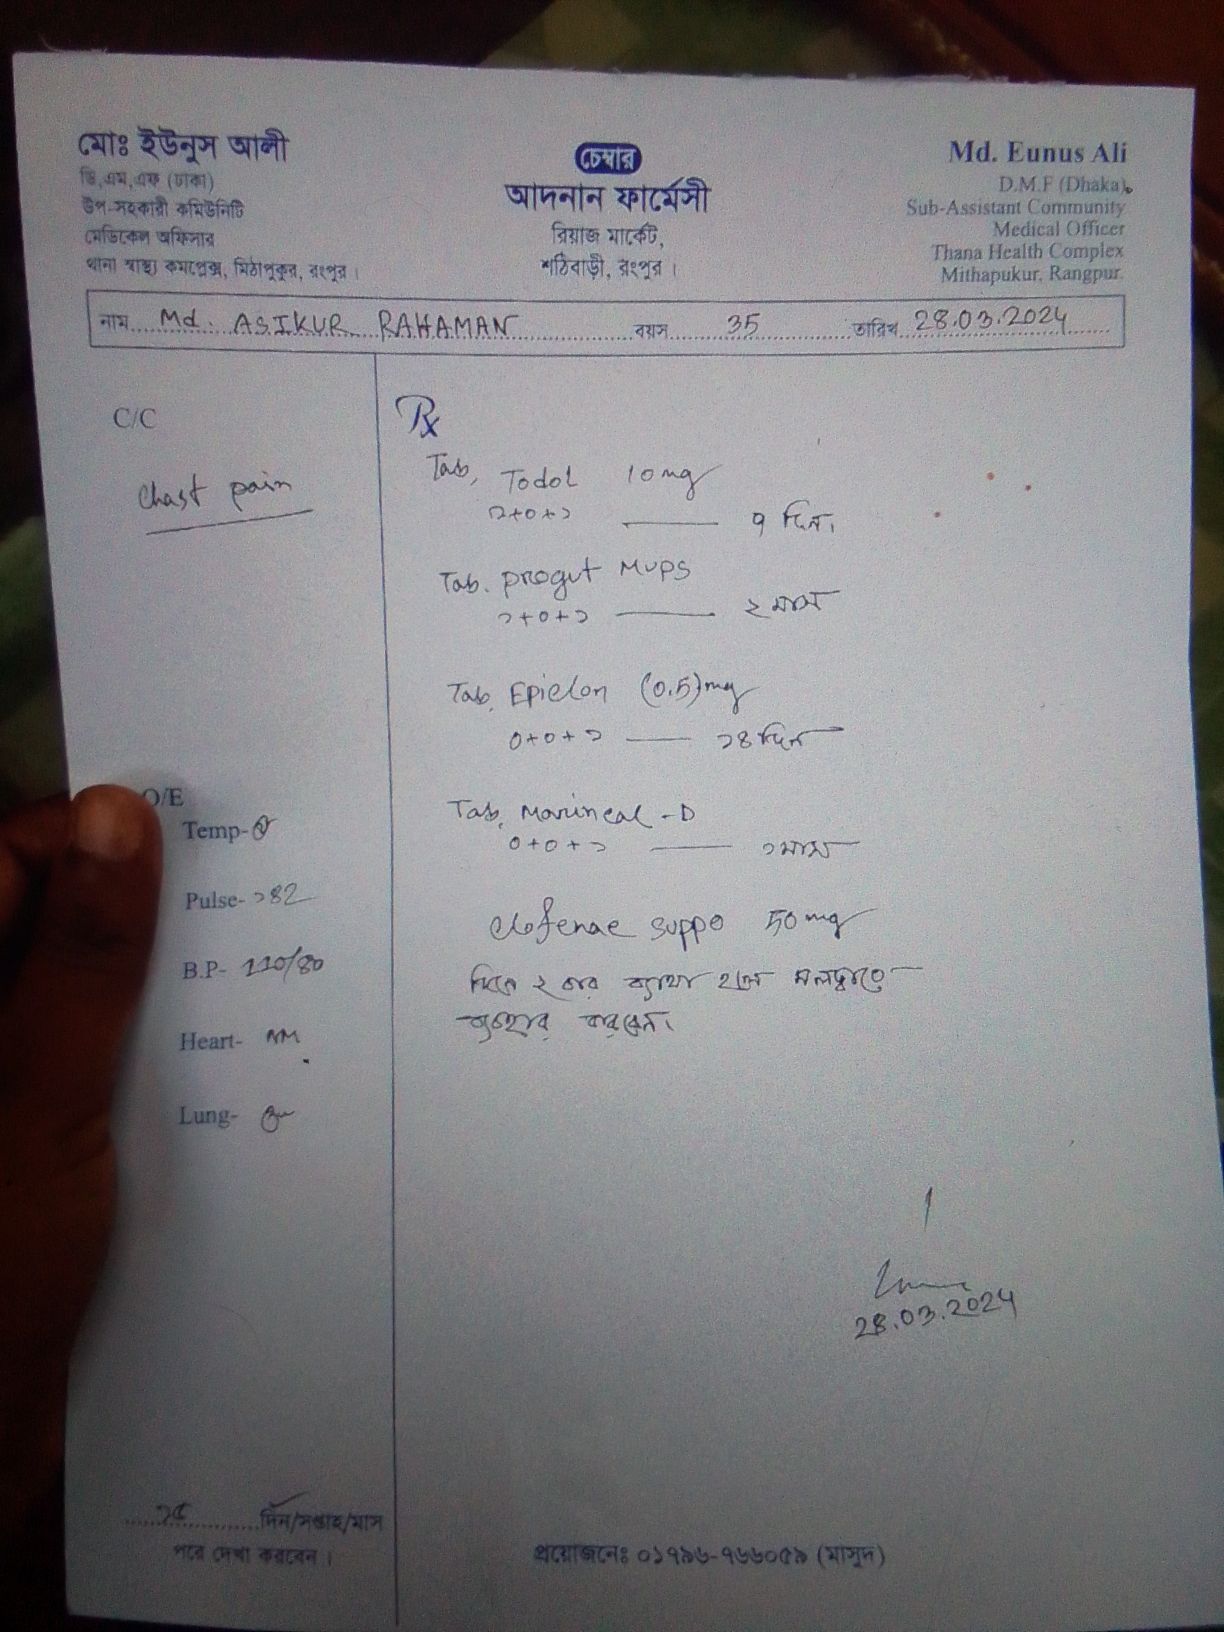 মোঃ ইউনুস আলী
ডি,এম,এফ (ঢাকা)
উপ-সহকারী কমিউনিটি
মেডিকেল অফিসার
থানা স্বাস্থ্য কমপ্লেক্স, মিঠাপুকুর, রংপুর।
চেম্বার
আদনান ফার্মেসী
রিয়াজ মার্কেট,
শঠিবাড়ী, রংপুর।
Md. Eunus Ali
D.M.F (Dhaka)
Sub-Assistant Community
Medical Officer
Thana Health Complex
Mithapukur, Rangpur.
নাম Md. ASIKUR RAHAMAN বয়স 35 তারিখ 28.03.2024
C/C
Chast pain
O/E
Temp-
Pulse-
B.P- 110/80
Heart-
Lung-
Rx
Tab, Todol 10mg
১+০+১ — ৭ দিন।
Tab. progut MUPS
১+০+১ — ২ মাস
Tab, Epiclon (0.5)mg
০+০+১ — ১৪ দিন
Tab, Marineal -D
০+০+১ — ১ মাস
clofenac suppo 50mg
দিনে ২ বার ব্যাথা হলে মলদ্বারে
ব্যবহার করবেন।
28.03.2024
১৫ দিন/সপ্তাহ/মাস
পরে দেখা করবেন।
প্রয়োজনেঃ ০১৭৯৬-৭৬৬০৫৯ (মাসুদ)